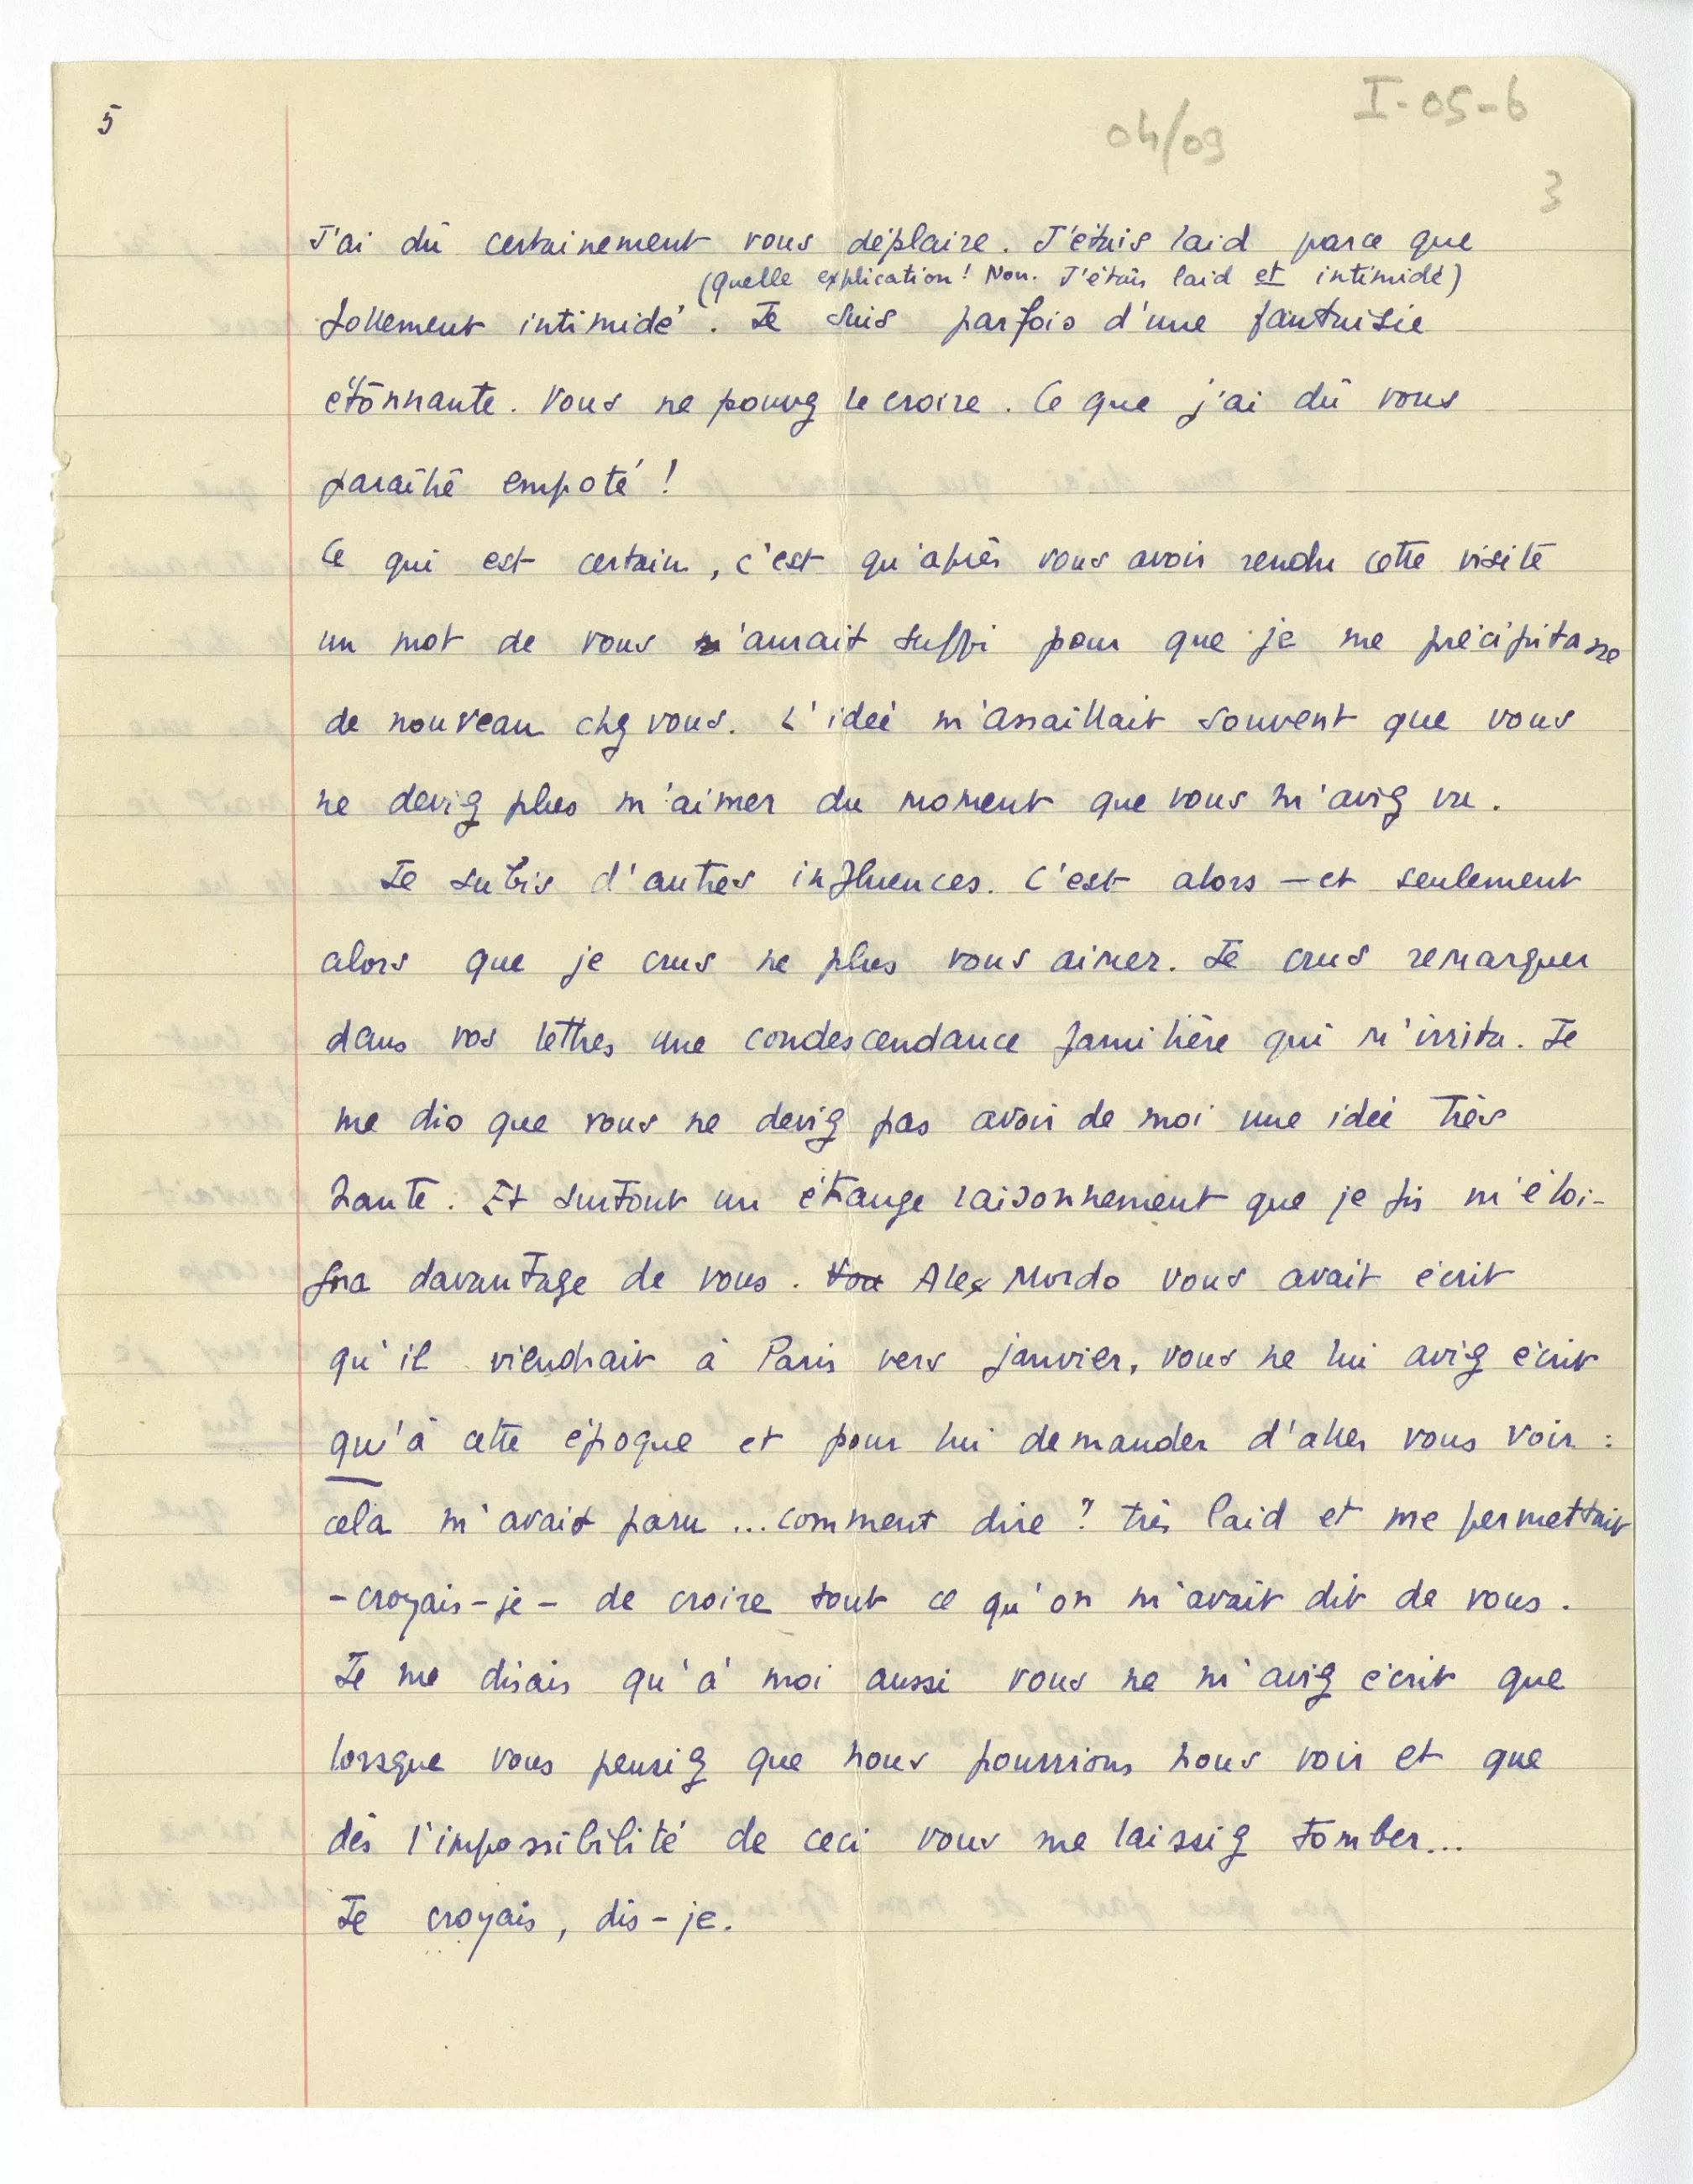 5
04/09
I-05-6
3
J'ai dû certainement vous déplaire. J'étais laid parce que
(Quelle explication! Non. J'étais laid et intimidé)
follement intimidé. Je suis parfois d'une fantaisie
étonnante. Vous ne pouvez le croire. Ce que j'ai dû vous
paraître empoté!
Ce qui est certain, c'est qu'après vous avoir rendu cette visite
un mot de vous m'aurait suffi pour que je me précipitasse
de nouveau chez vous. L'idée m'assaillait souvent que vous
ne deviez plus m'aimer du moment que vous m'aviez vu.
Je subis d'autres influences. C'est alors – et seulement
alors que je crus ne plus vous aimer. Je crus remarquer
dans vos lettres une condescendance familière qui m'irrita. Je
me dis que vous ne deviez pas avoir de moi une idée très
haute. Et surtout un étrange raisonnement que je fis m'éloi-
gna davantage de vous. Vou Alex Mordo vous avait écrit
qu'il viendrait à Paris vers janvier, vous ne lui aviez écrit
qu'à cette époque et pour lui demander d'aller vous voir :
cela m'avait paru ... comment dire ? très laid et me permettait
- croyais-je - de croire tout ce qu'on m'avait dit de vous.
Je me disais qu'à moi aussi vous ne m'aviez écrit que
lorsque vous pensiez que nous pourrions nous voir et que
dès l'impossibilité de ceci vous me laissiez tomber...
Je croyais, dis-je.